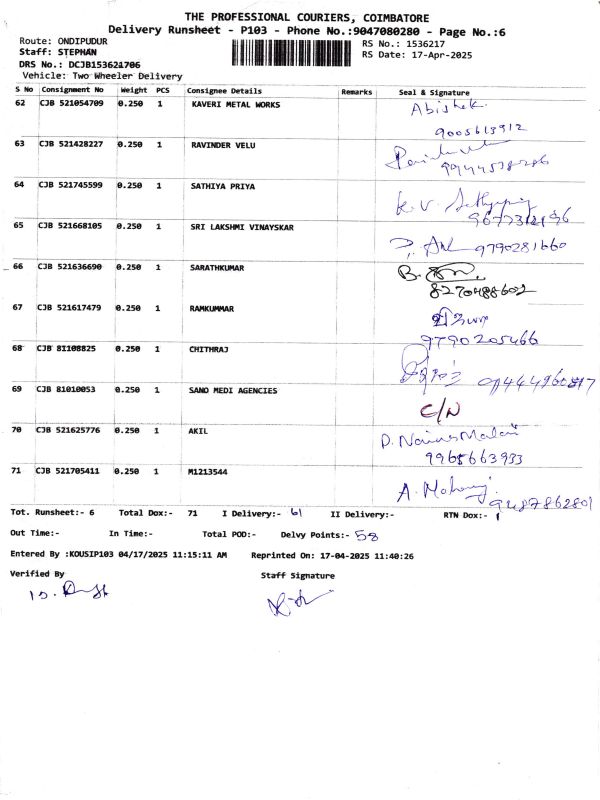 THE PROFESSIONAL COURIERS, COIMBATORE
Delivery Runsheet - P103 - Phone No.:9047080280 - Page No.:6
Route: ONDIPUDUR
RS No.: 1536217
Staff: STEPHAN
RS Date: 17-Apr-2025
DRS No.: DCJB153621706
Vehicle: Two Wheeler Delivery
S No Consignment No Weight PCS Consignee Details Remarks Seal & Signature
62 CJB 521054709 0.250 1 KAVERI METAL WORKS Abishek
9005613912
63 CJB 521428227 0.250 1 RAVINDER VELU
64 CJB 521745599 0.250 1 SATHIYA PRIYA K.V.
65 CJB 521668105 0.250 1 SRI LAKSHMI VINAYSKAR
9790281660
66 CJB 521636690 0.250 1 SARATHKUMAR
8270488602
67 CJB 521617479 0.250 1 RAMKUMMAR
9790205466
68 CJB 81108825 0.250 1 CHITHRAJ
69 CJB 81010053 0.250 1 SANO MEDI AGENCIES C/N
70 CJB 521625776 0.250 1 AKIL
9965663933
71 CJB 521705411 0.250 1 M1213544 A.
9487862801
Tot. Runsheet:- 6 Total Dox:- 71 I Delivery:- 61 II Delivery:- RTN Dox:- 1
Out Time:- In Time:- Total POD:- Delvy Points:- 58
Entered By :KOUSIP103 04/17/2025 11:15:11 AM Reprinted On: 17-04-2025 11:40:26
Verified By Staff Signature